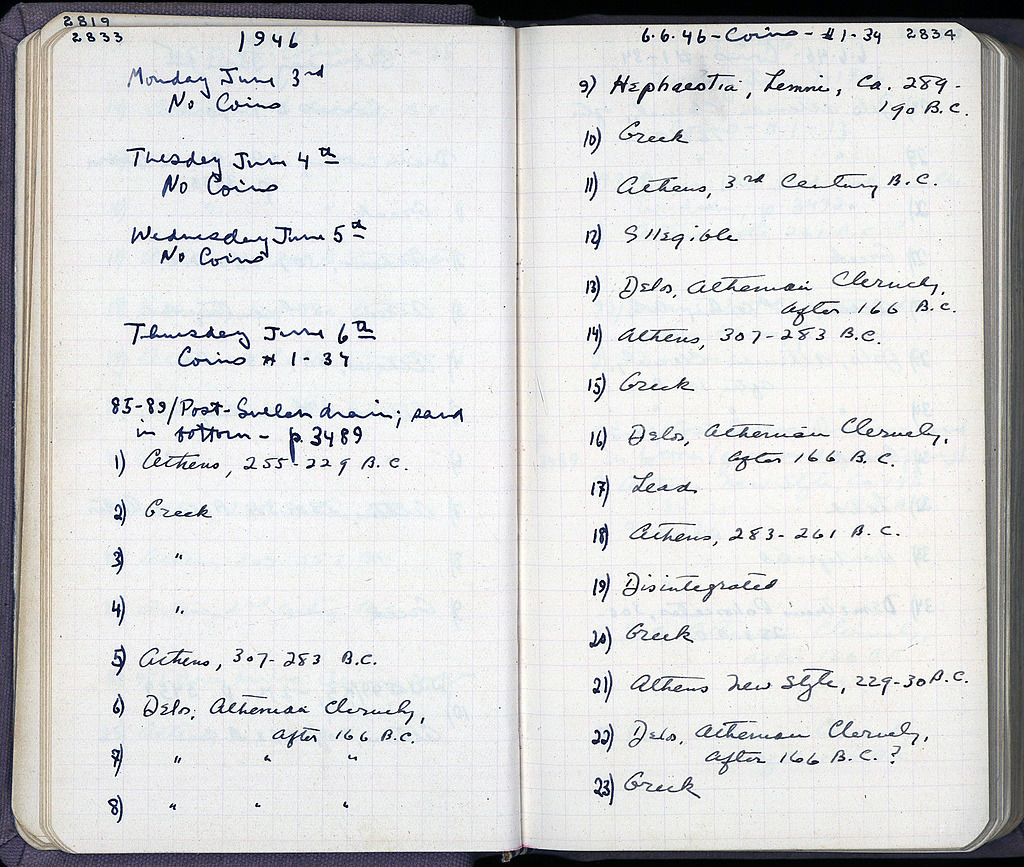 2819
2833
1946
Monday June 3rd
No Coins
Tuesday June 4th
No Coins
Wednesday June 5th
No Coins
Thursday June 6th
Coins # 1-34
85-89/Post-Sullan drain; sand
in bottom - p.3489
1) Athens, 255-229 B.C.
2) Greek
3) "
4) "
5) Athens, 307-283 B.C.
6) Delos, Athenian Cleruchy,
after 166 B.C.
7) " " "
8) " " "
6.6.46-Coins-#1-34 2834
9) Hephaestia, Lemni, Ca. 289-
190 B.C.
10) Greek
11) Athens, 3rd Century B.C.
12) Illegible
13) Delos, Athenian Cleruchy,
after 166 B.C.
14) Athens, 307-283 B.C.
15) Greek
16) Delos, Athenian Cleruchy,
after 166 B.C.
17) Lead
18) Athens, 283-261 B.C.
19) Disintegrated
20) Greek
21) Athens New Style, 229-30 B.C.
22) Delos, Athenian Cleruchy,
after 166 B.C.?
23) Greek